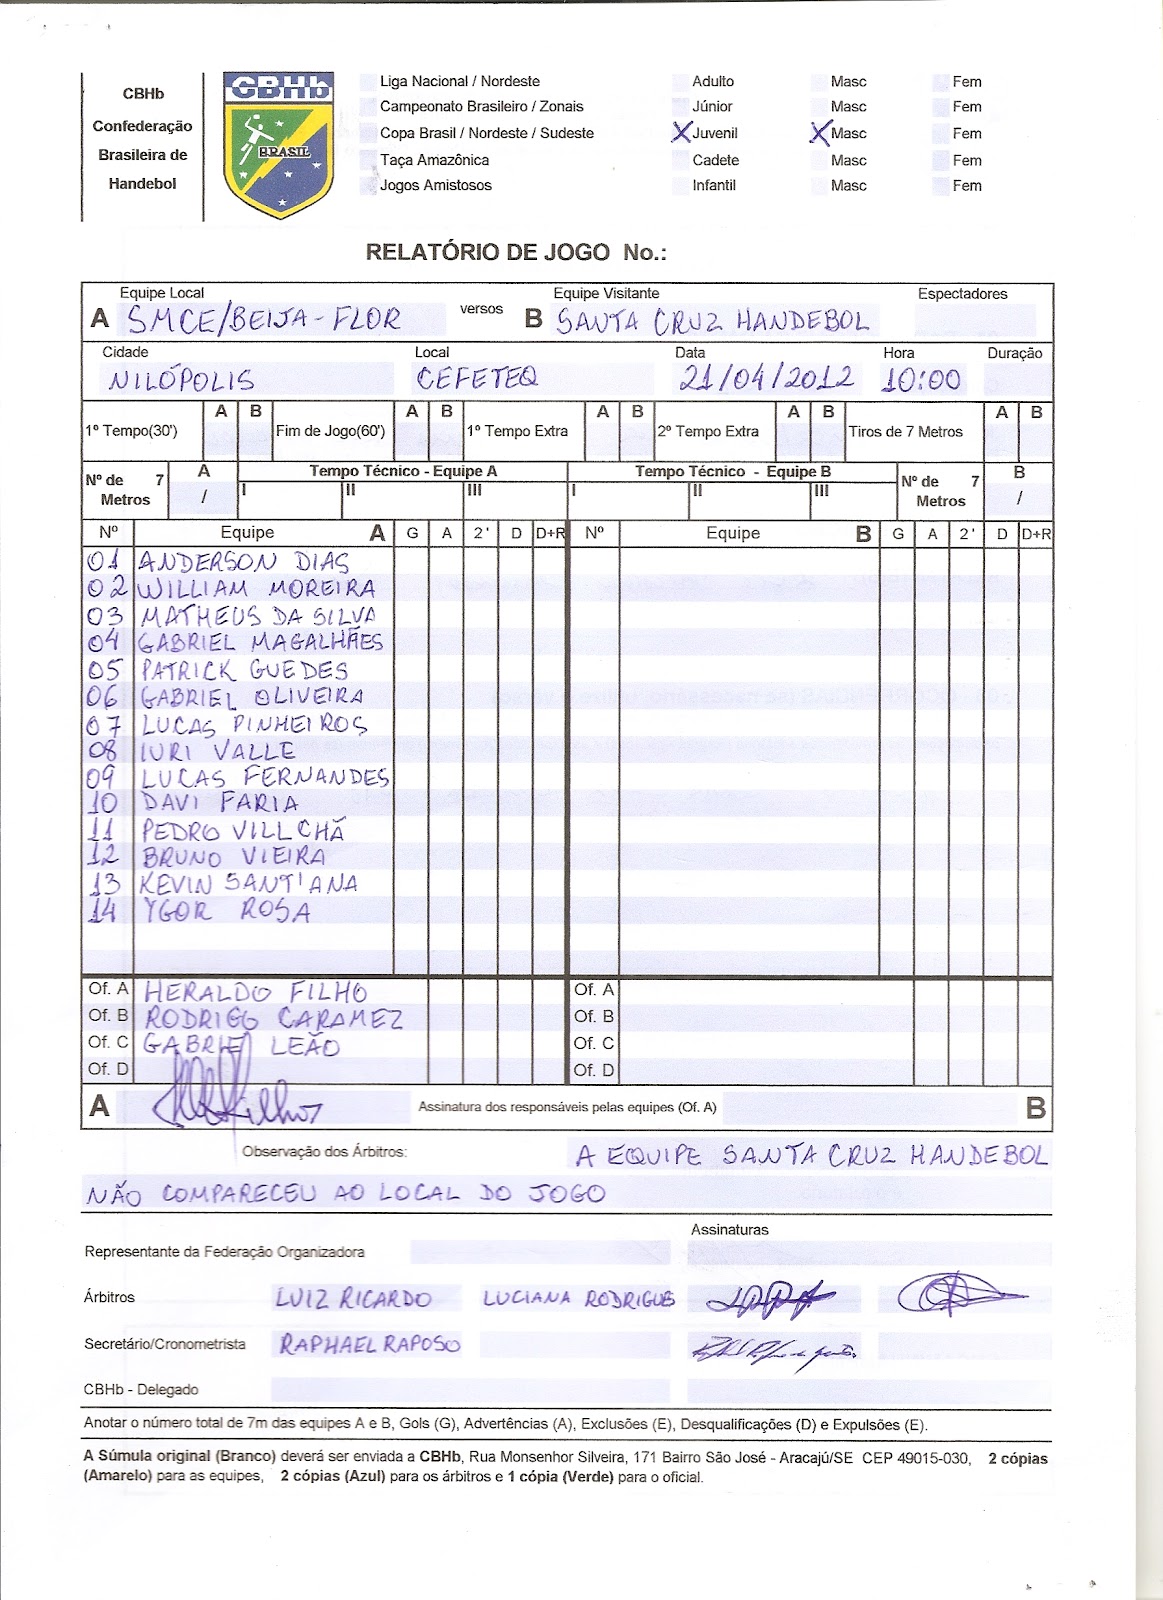 CBHb
Confederação
Brasileira de
Handebol
CBHb
BRASIL
Liga Nacional / Nordeste Adulto Masc Fem
Campeonato Brasileiro / Zonais Júnior Masc Fem
Copa Brasil / Nordeste / Sudeste X Juvenil X Masc Fem
Taça Amazônica Cadete Masc Fem
Jogos Amistosos Infantil Masc Fem
RELATÓRIO DE JOGO No.:
Equipe Local Equipe Visitante Espectadores
A SMCE/BEIJA-FLOR versos B SANTA CRUZ HANDEBOL
Cidade Local Data Hora Duração
NILÓPOLIS CEFETEQ 21/04/2012 10:00
A B A B A B A B A B
1º Tempo(30') Fim de Jogo(60') 1º Tempo Extra 2º Tempo Extra Tiros de 7 Metros
Nº de 7 Metros A / Tempo Técnico - Equipe A Tempo Técnico - Equipe B Nº de 7 Metros B /
I II III I II III
Nº Equipe A G A 2' D D+R Nº Equipe B G A 2' D D+R
01 ANDERSON DIAS
02 WILLIAM MOREIRA
03 MATHEUS DA SILVA
04 GABRIEL MAGALHÃES
05 PATRICK GUEDES
06 GABRIEL OLIVEIRA
07 LUCAS PINHEIROS
08 IURI VALLE
09 LUCAS FERNANDES
10 DAVI FARIA
11 PEDRO VILLCHÃ
12 BRUNO VIEIRA
13 KEVIN SANT'ANA
14 YGOR ROSA
Of. A HERALDO FILHO Of. A
Of. B RODRIGO CARAMEZ Of. B
Of. C GABRIEL LEÃO Of. C
Of. D Of. D
A Assinatura dos responsáveis pelas equipes (Of. A) B
Observação dos Árbitros: A EQUIPE SANTA CRUZ HANDEBOL
NÃO COMPARECEU AO LOCAL DO JOGO
Assinaturas
Representante da Federação Organizadora
Árbitros LUIZ RICARDO LUCIANA RODRIGUES
Secretário/Cronometrista RAPHAEL RAPOSO
CBHb - Delegado
Anotar o número total de 7m das equipes A e B, Gols (G), Advertências (A), Exclusões (E), Desqualificações (D) e Expulsões (E).
A Súmula original (Branco) deverá ser enviada a CBHb, Rua Monsenhor Silveira, 171 Bairro São José - Aracajú/SE CEP 49015-030, 2 cópias
(Amarelo) para as equipes, 2 cópias (Azul) para os árbitros e 1 cópia (Verde) para o oficial.